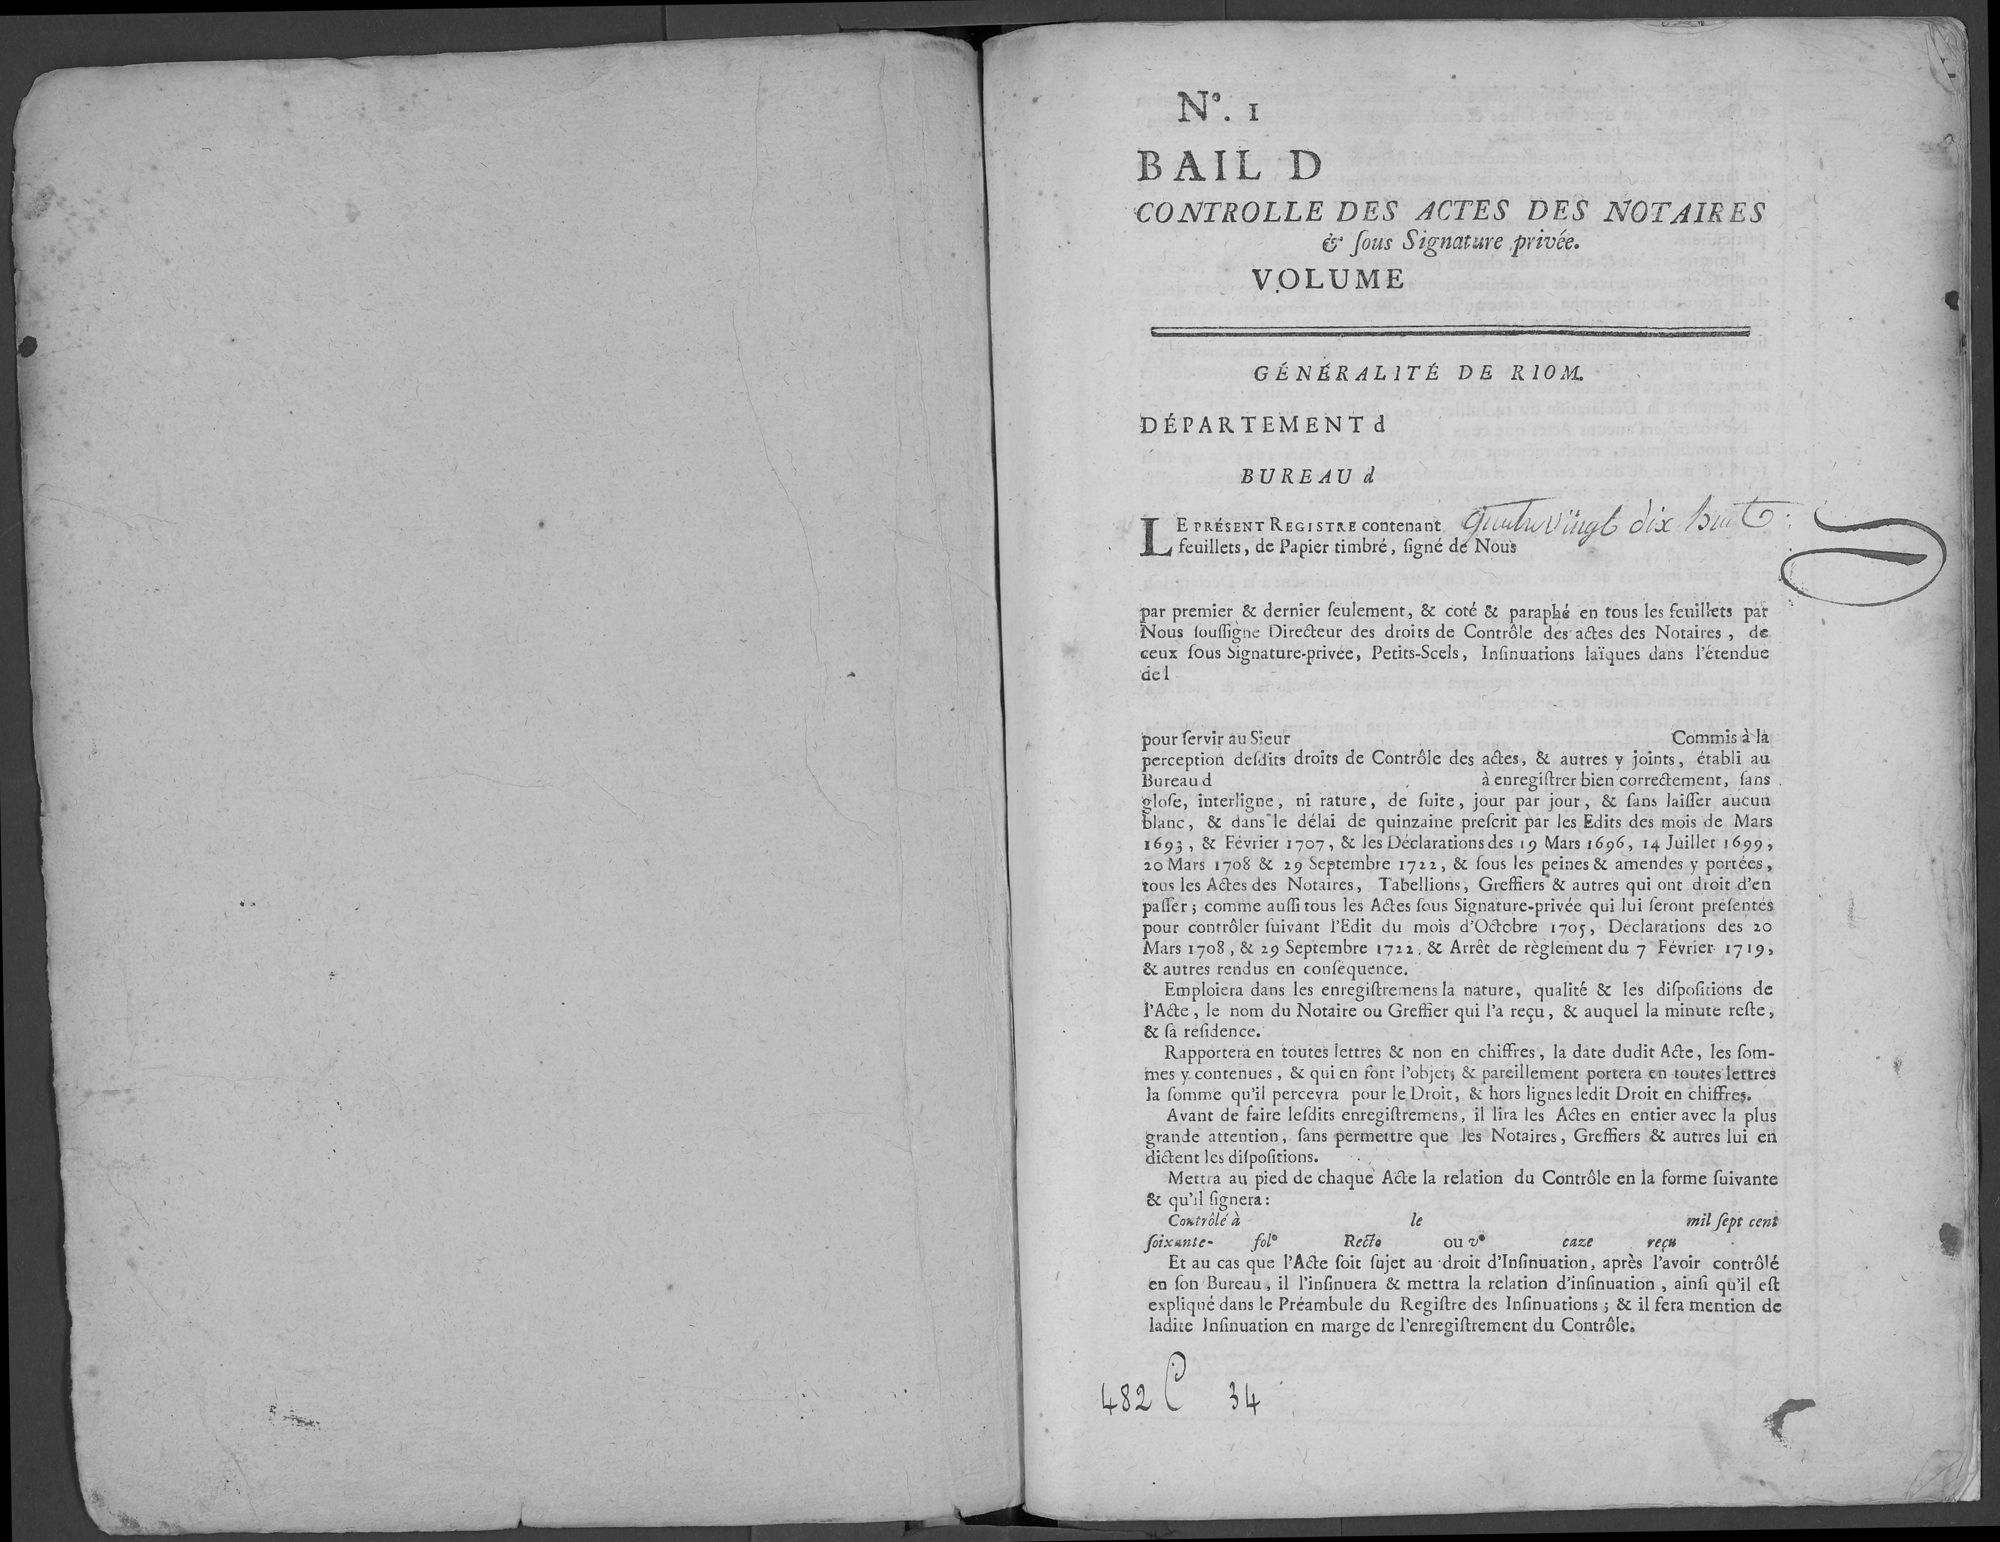 N°. 1
BAIL D
CONTROLLE DES ACTES DES NOTAIRES
& ſous Signature privée.
VOLUME
GÉNÉRALITÉ DE RIOM.
DÉPARTEMENT d
BUREAU d
LE PRÉSENT REGISTRE contenant quatre vingt dix huit
feuillets, de Papier timbré, ſigné de Nous
par premier & dernier ſeulement, & coté & paraphé en tous les feuillets par
Nous ſouſſigne Directeur des droits de Contrôle des actes des Notaires, de
ceux ſous Signature-privée, Petits-Scels, Inſinuations laïques dans l'étendue
del
pour ſervir au Sieur Commis à la
perception deſdits droits de Contrôle des actes, & autres y joints, établi au
Bureau d à enregiſtrer bien correctement, ſans
gloſe, interligne, ni rature, de ſuite, jour par jour, & ſans laiſſer aucun
blanc, & dans le délai de quinzaine preſcrit par les Edits des mois de Mars
1693, & Février 1707, & les Déclarations des 19 Mars 1696, 14 Juillet 1699,
20 Mars 1708 & 29 Septembre 1722, & ſous les peines & amendes y portées,
tous les Actes des Notaires, Tabellions, Greffiers & autres qui ont droit d'en
paſſer; comme auſſi tous les Actes ſous Signature-privée qui lui ſeront préſentés
pour contrôler ſuivant l'Edit du mois d'Octobre 1705, Déclarations des 20
Mars 1708, & 29 Septembre 1722, & Arrêt de règlement du 7 Février 1719,
& autres rendus en conſéquence.
Emploiera dans les enregiſtremens la nature, qualité & les diſpoſitions de
l'Acte, le nom du Notaire ou Greffier qui l'a reçu, & auquel la minute reſte,
& ſa réſidence.
Rapportera en toutes lettres & non en chiffres, la date dudit Acte, les ſom-
mes y contenues, & qui en font l'objet; & pareillement portera en toutes lettres
la ſomme qu'il percevra pour le Droit, & hors lignes ledit Droit en chiffres.
Avant de faire leſdits enregiſtremens, il lira les Actes en entier avec la plus
grande attention, ſans permettre que les Notaires, Greffiers & autres lui en
dictent les diſpoſitions.
Mettra au pied de chaque Acte la relation du Contrôle en la forme ſuivante
& qu'il ſignera:
Contrôlé à le mil ſept cent
ſoixante- fol° Recto ou v° caze reçu
Et au cas que l'Acte ſoit ſujet au droit d'Inſinuation, après l'avoir contrôlé
en ſon Bureau, il l'inſinuera & mettra la relation d'inſinuation, ainſi qu'il eſt
expliqué dans le Préambule du Regiſtre des Inſinuations; & il fera mention de
ladite Inſinuation en marge de l'enregiſtrement du Contrôle.
482 C 34